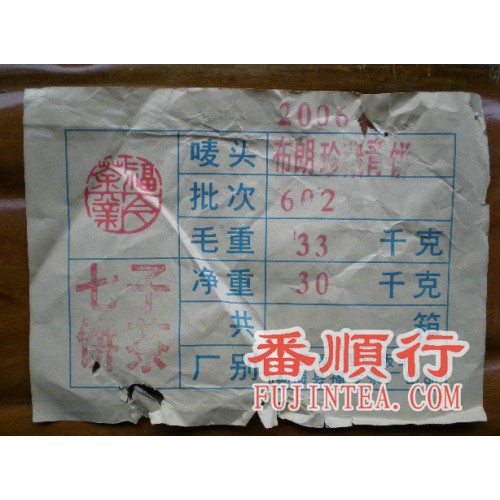 2006
唛头 布朗珍藏青饼
批次 602
毛重 33 千克
净重 30 千克
共 箱
厂别
福今茶业
七子饼茶
番順行
FUJINTEA.COM